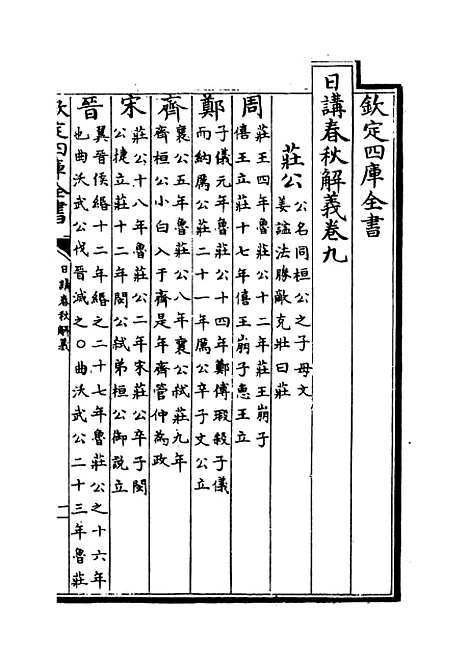 欽定四庫全書
日講春秋解義卷九
莊公
公名同桓公之子母文
姜謚法勝敵克壯曰莊
周
莊王四年魯莊公十二年莊王崩子
僖王立莊十七年僖王崩子惠王立
鄭
子儀元年魯莊公十四年鄭傅瑕殺子儀
而納厲公莊二十一年厲公卒子文公立
齊
襄公五年魯莊公八年襄公弑莊九年
齊桓公小白入于齊是年齊管仲為政
宋
莊公十八年魯莊公二年宋莊公卒子閔
公捷立莊十二年閔公弑弟桓公御說立
晉
翼晉侯緡十二年緡之二十七年魯莊公之十六年
也曲沃武公伐晉滅之○曲沃武公二十三年魯莊
欽定四庫全書
日講春秋解義
一